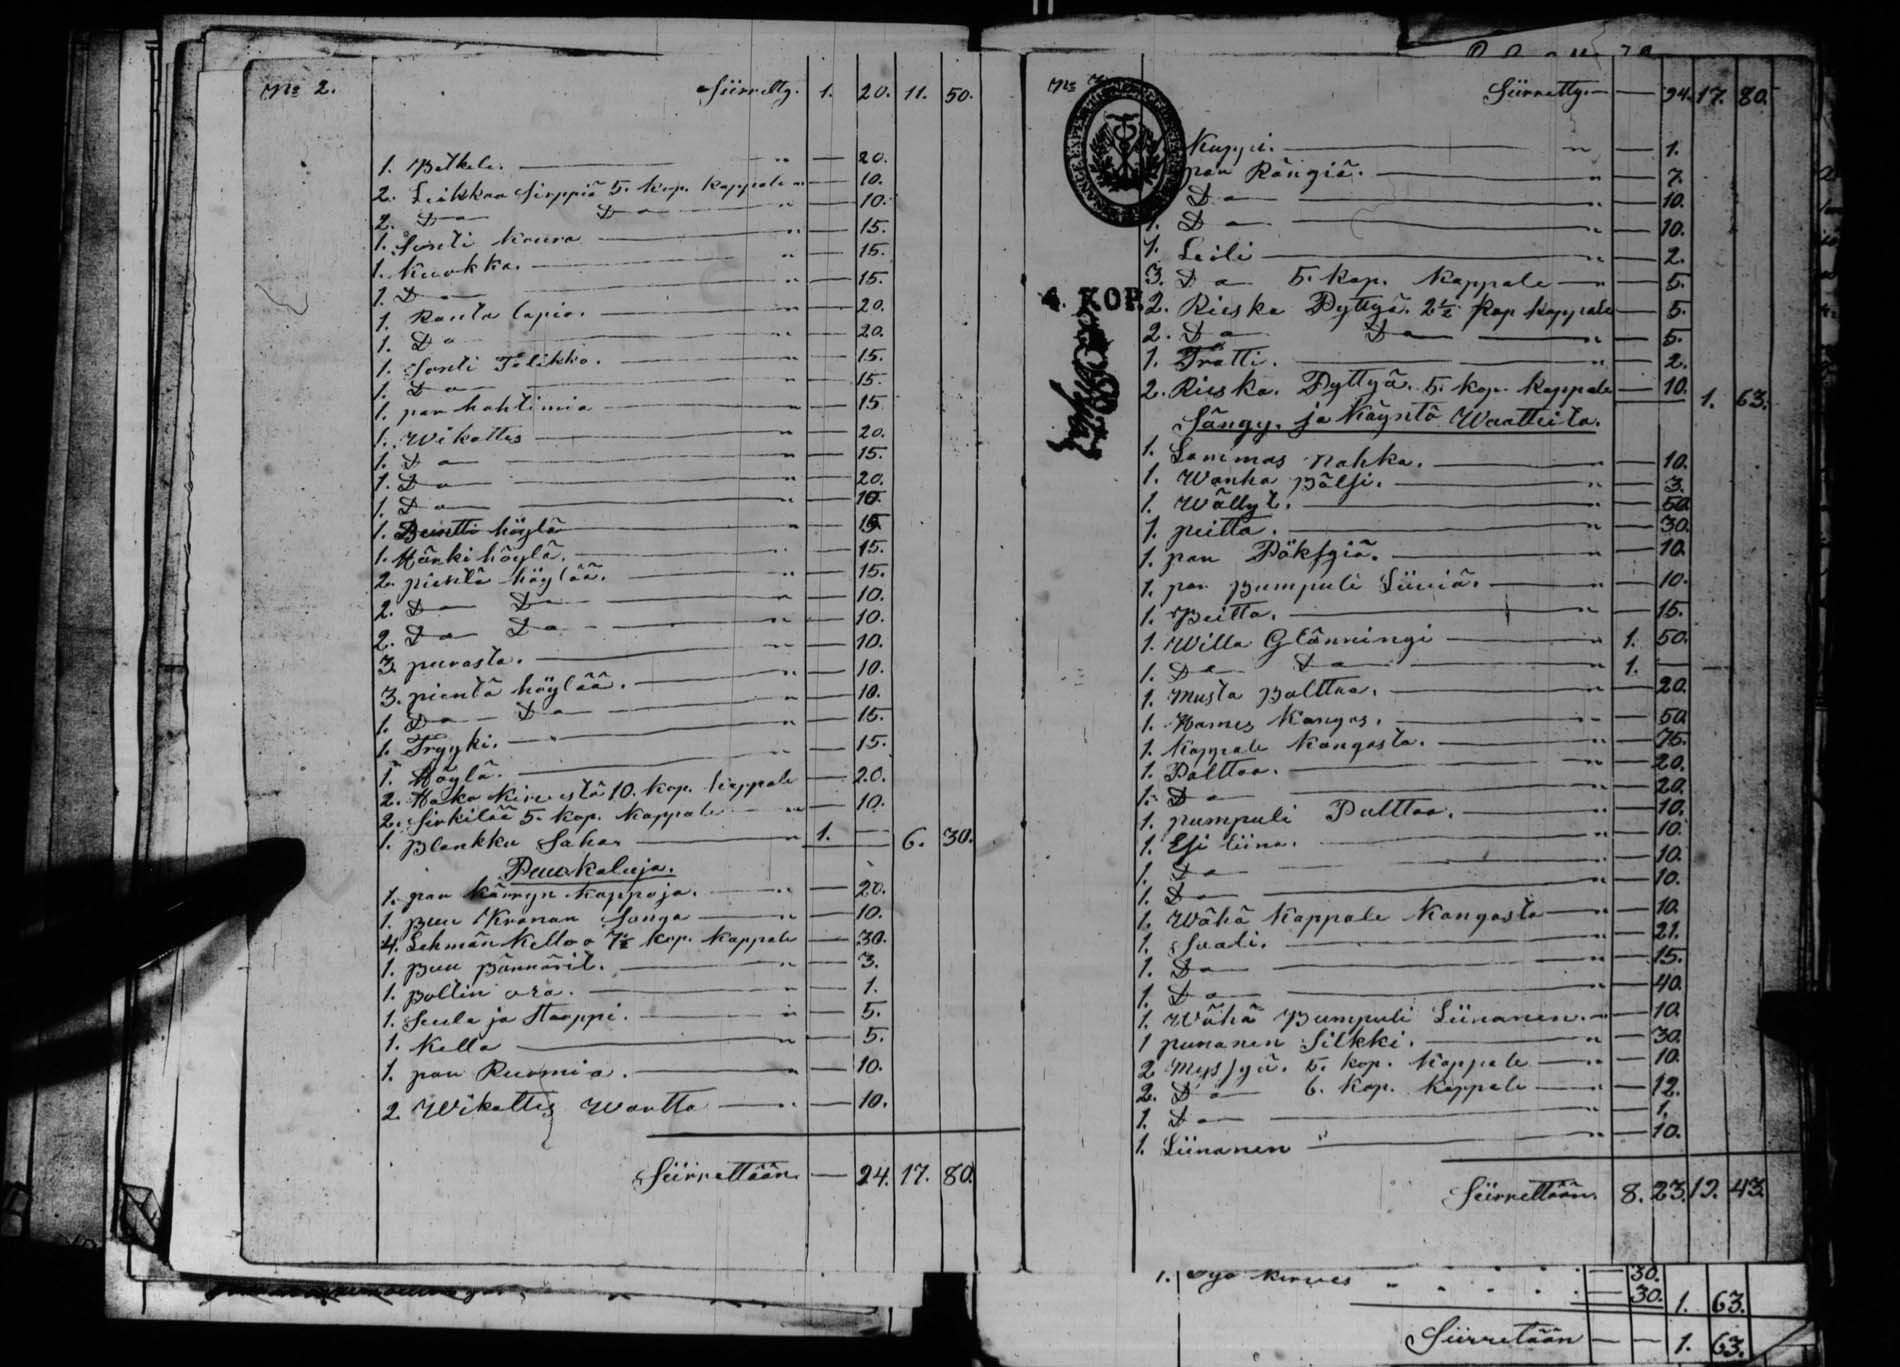 No 2. Siirretty. 1. 20. 11. 50.
1. Petkele. " — 20.
2. Leikkaa Sirppiä 5. kop. kappale " — 10.
2. Do Do " — 10.
1. Sonti Koura " — 15.
1. Kuokka. " — 15.
1. Do " — 15.
1. Rauta lapio. " — 20.
1. Do " — 20.
1. Sonti Tälikko. " — 15.
1. Do " — 15.
1. par hohtimia " — 15.
1. Wikattes " — 20.
1. Do " — 15.
1. Do " — 20.
1. Do " — 10.
1. höylä " — 15.
1. Härki höylä. " — 15.
2. pientä höylää. " — 15.
2. Do Do " — 10.
2. Do Do " — 10.
3. purasta. " — 10.
3. pientä höylää. " — 10.
1. Do Do " — 10.
1. Tryyki. " — 15.
1. Höylä. " — 15.
2. Hako kirvestä 10. kop. kappale — 20.
2. Sirkilää 5. kop. kappale " — 10.
1. Plankku Saha " 1. — 6. 30.
Puukaluja.
1. par kärryn kappoja. " — 20.
1. puu Kranan Sanga " — 10.
4. Lehmän Kelloa 7½ kop. kappale — 30.
1. puu pännärit. " — 3.
1. poltin ora. " — 1.
1. Seula ja Harppi. " — 5.
1. Kello " — 5.
1. par Ruomia. " — 10.
2 Wikattes Wartta " — 10.
Siirrettään — 24. 17. 80.
No Siirretty. — 24. 17. 80.
4. KOP.
Kuppi. " — 1.
par Rängiä. " — 7.
Do " — 10.
1. Do " — 10.
1. Leili " — 2.
3. Do 5. kop. kappale " — 5.
2. Rieska Pyttyä. 2½ kop kappale — 5.
2. Do Do " — 5.
1. Tratti. " — 2.
2. Rieska. Pyttyä. 5. kop. kappale — 10. 1. 63.
Sängy. ja Käyntö Waatteita.
1. Lammas nahka. " — 10.
1. Wanha pälsi. " — 3.
1. Wällyt. " — 50
1. peitto. " — 30.
1. par Pöksyiä. " — 10.
1. par pumpuli Liiviä. " — 10.
1. Peitto. " — 15.
1. Willa Glänningi " 1. 50.
1. Do Do " 1. —
1. Musta palttoo. " — 20.
1. Hames Kangas. " — 50
1. Kappale Kangasta. " — 75.
1. Palttoo. " — 20.
1. Do " — 20.
1. pumpuli Palttoo. " — 10.
1. Esi liina. " — 10.
1. Do " — 10.
1. Do " — 10.
1. Wähä Kappale Kangasta " — 10
1. Suali. " — 21.
1. Do " — 15.
1. Do " — 40.
1. Wähä Pumpuli Liinanen. " — 10.
1 punanen Silkki. " — 30.
2 Myssyä. 5. kop. kappale " — 10.
2. Do 6. kop. kappale " — 12.
1. Do " — 1.
1. Liinanen " — 10.
Siirrettään. 8. 23. 19. 43.
1. kirwes — 30.
— 30. 1. 63.
Siirretään — — 1. 63.